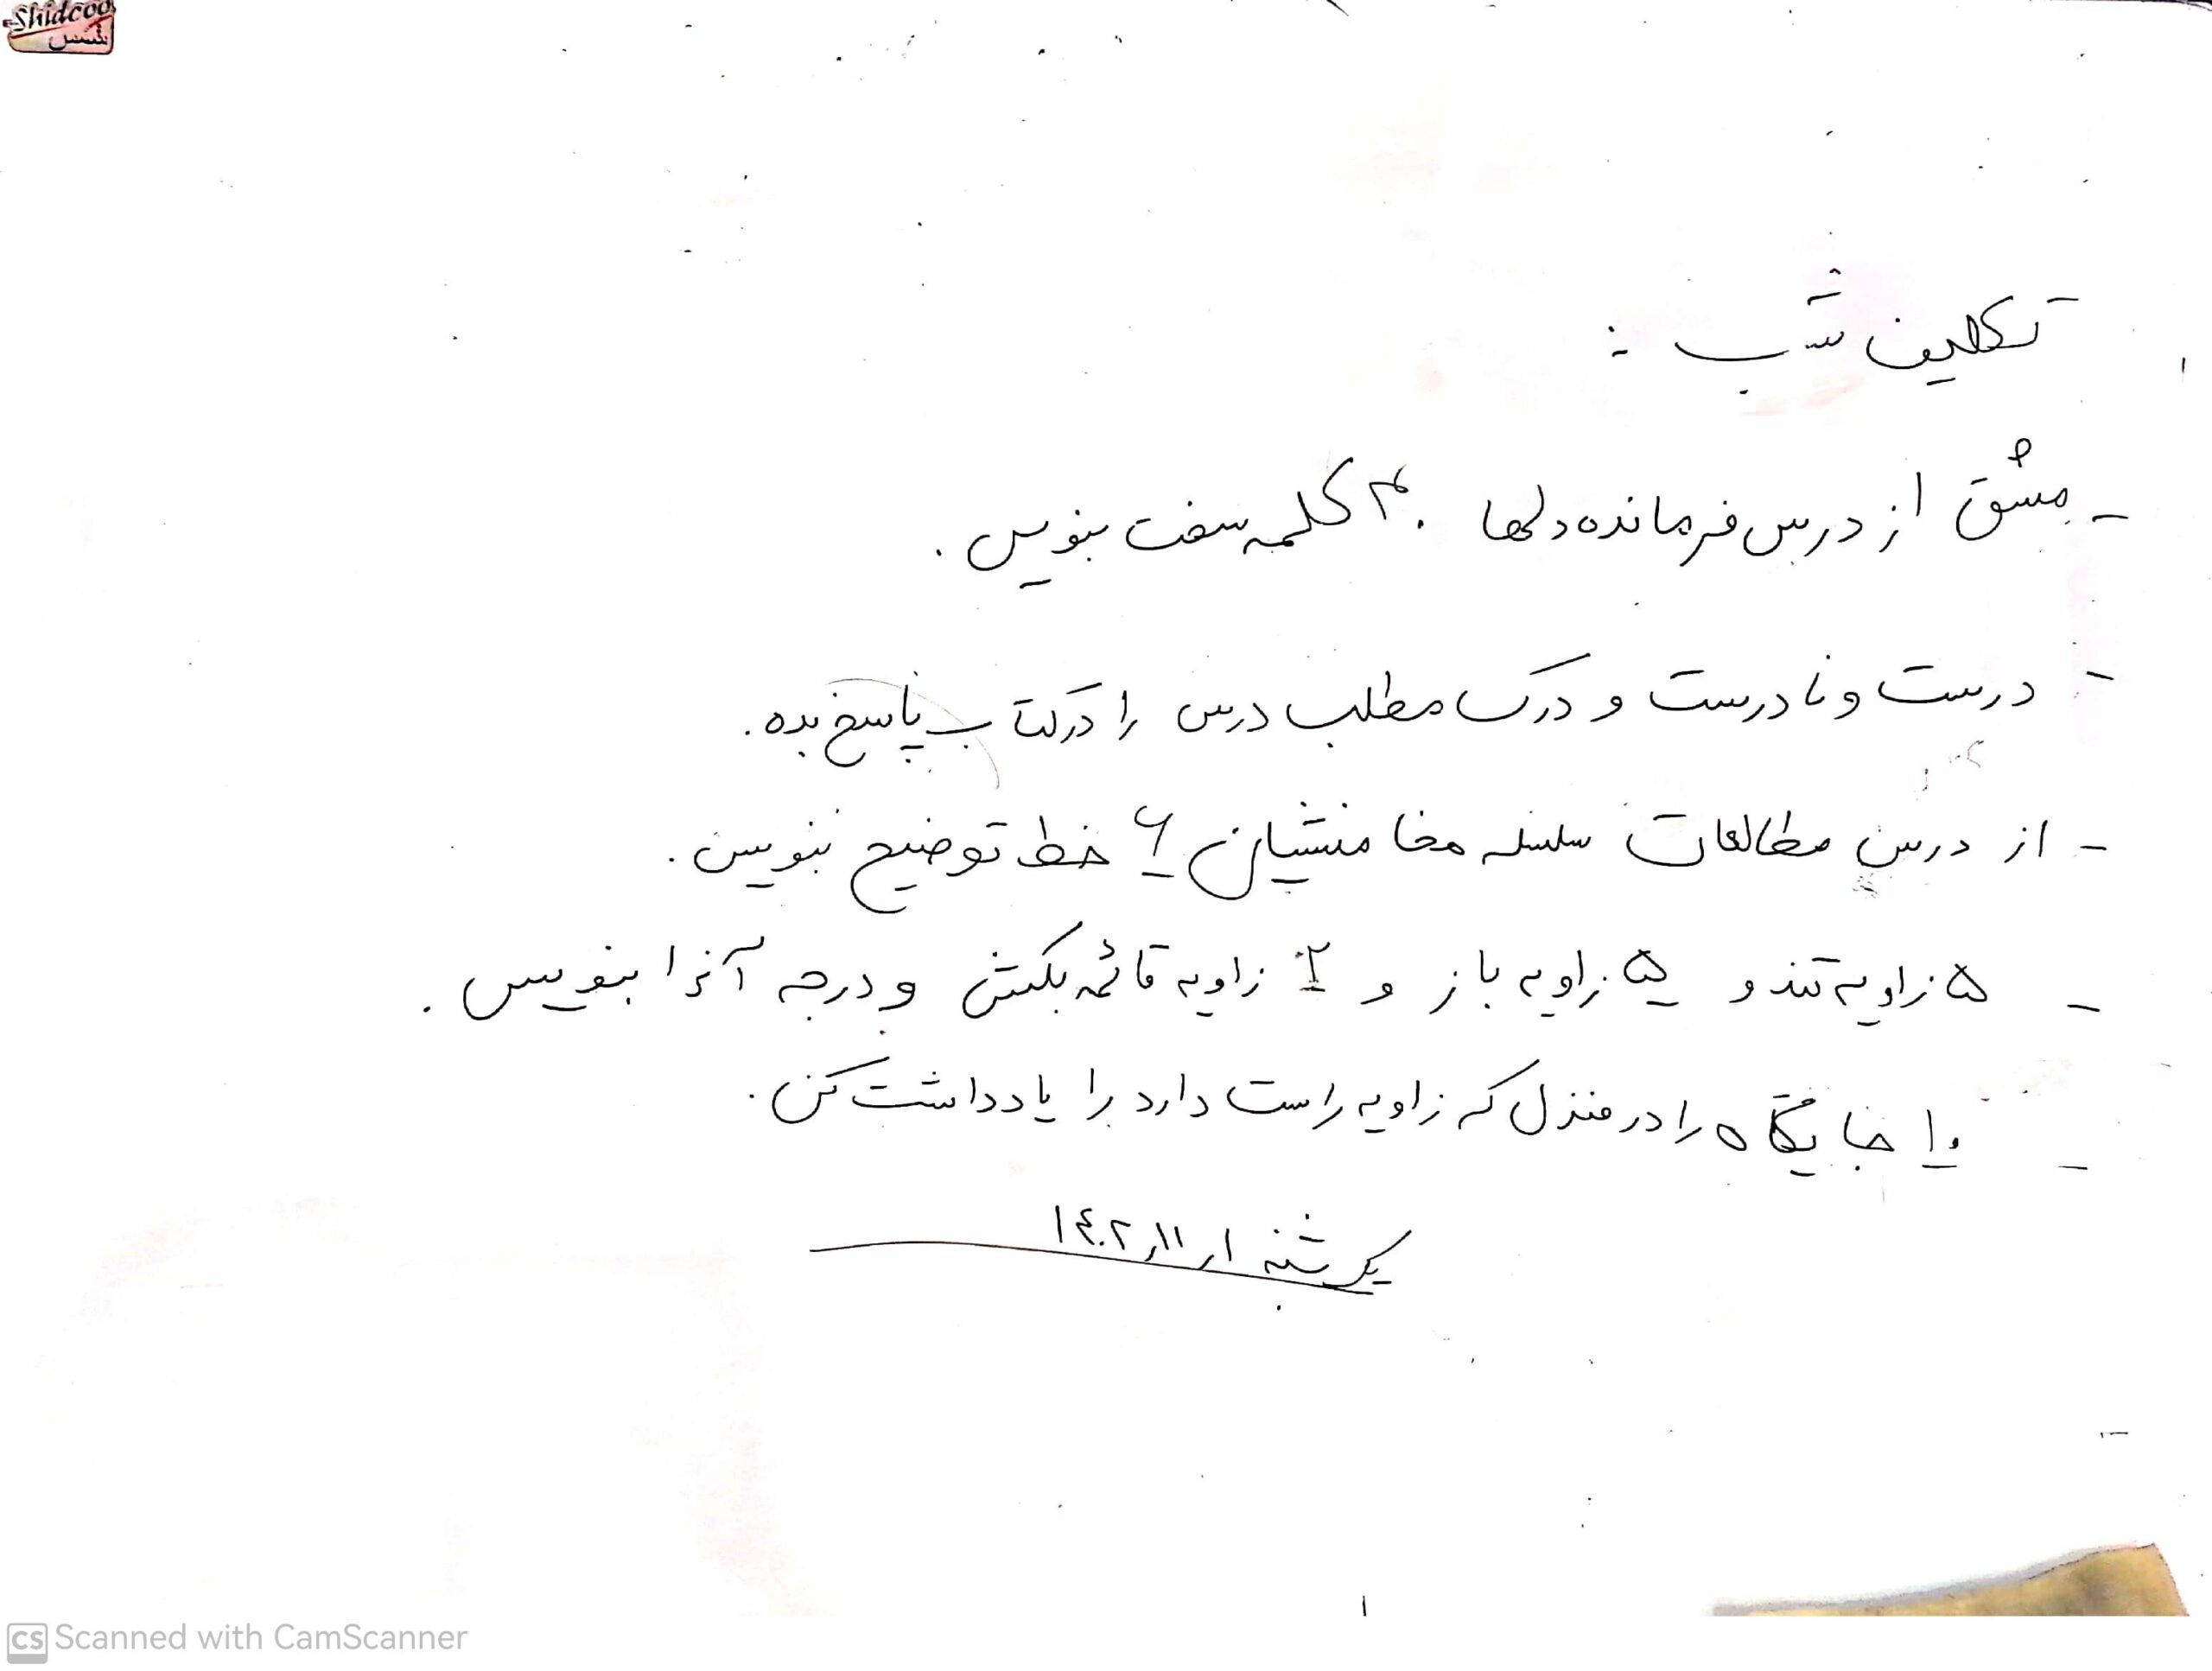 Shidcoo
شمس
تکلیف شب :
- مشق از درس فرمانده دلها ۳۰ کلمه سخت بنویس .
- درست و نادرست و درک مطلب درس را در کتاب پاسخ بده .
- از درس مطالعات سلسله هخامنشیان ۶ خط توضیح بنویس .
- ۵ زاویه تند و ۵ زاویه باز و ۲ زاویه قائمه بکش و درجه آنرا بنویس .
- ۱۰ جایگاه را در منزل که زاویه راست دارد را یادداشت کن .
یکشنبه ۱۴۰۲٫۱۱٫۱
CS Scanned with CamScanner